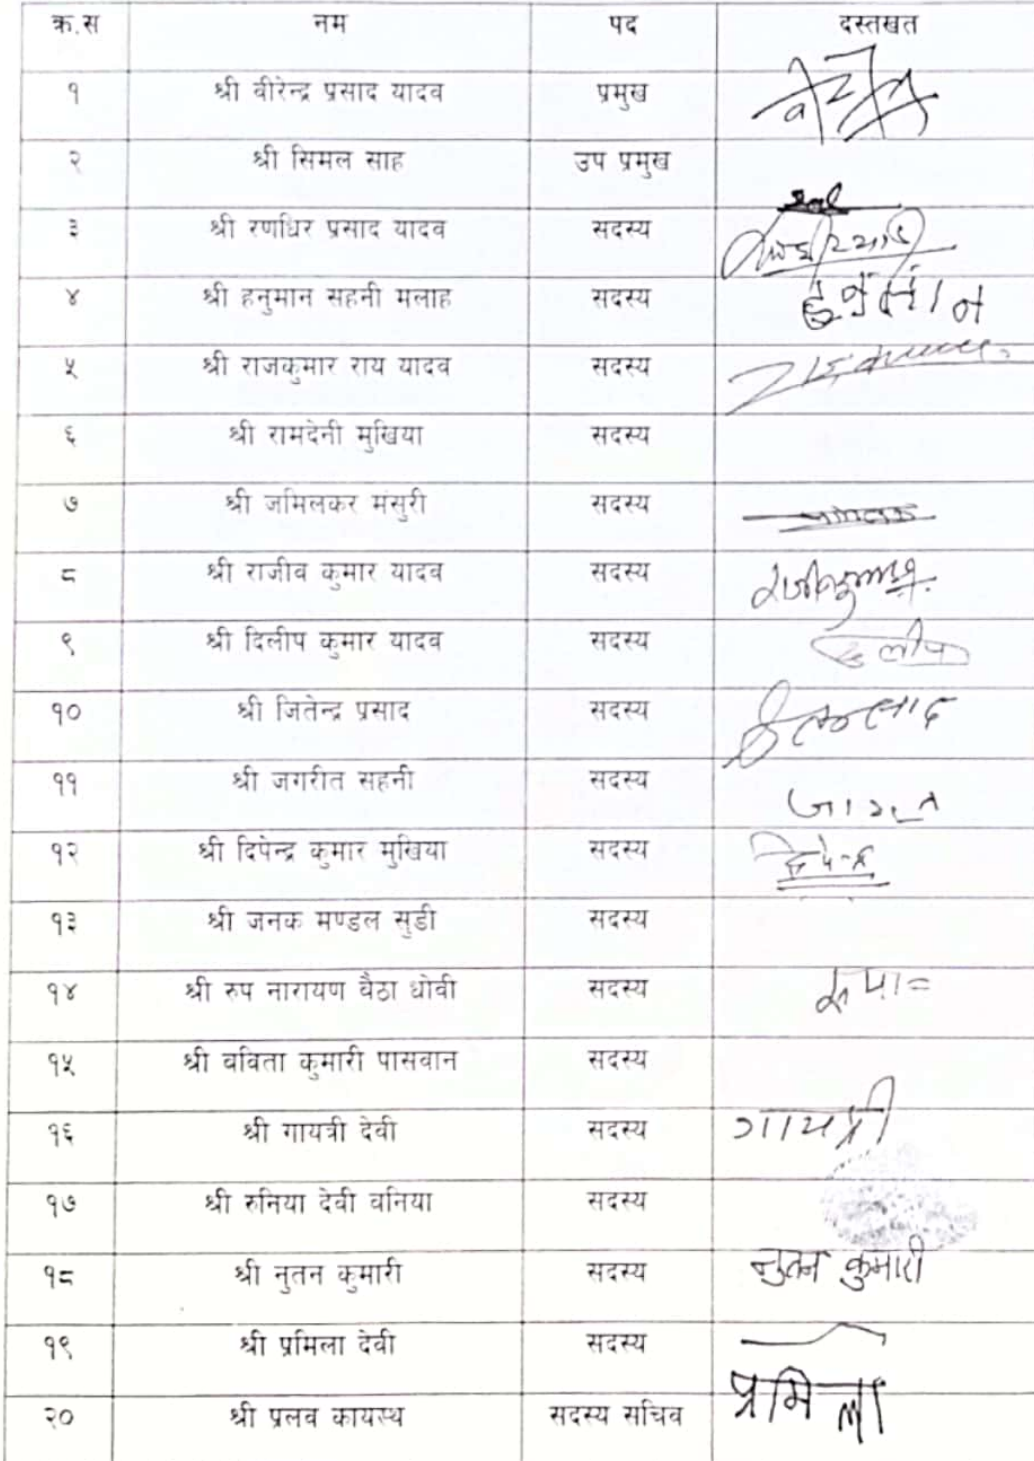 क्र.स नम पद दस्तखत
१ श्री वीरेन्द्र प्रसाद यादव प्रमुख
२ श्री सिमल साह उप प्रमुख
३ श्री रणधिर प्रसाद यादव सदस्य
४ श्री हनुमान सहनी मलाह सदस्य
५ श्री राजकुमार राय यादव सदस्य
६ श्री रामदेनी मुखिया सदस्य
७ श्री जमिलकर मंसुरी सदस्य
८ श्री राजीव कुमार यादव सदस्य
९ श्री दिलीप कुमार यादव सदस्य
१० श्री जितेन्द्र प्रसाद सदस्य
११ श्री जगरीत सहनी सदस्य
१२ श्री दिपेन्द्र कुमार मुखिया सदस्य
१३ श्री जनक मण्डल सुडी सदस्य
१४ श्री रुप नारायण वैठा धोवी सदस्य
१५ श्री वविता कुमारी पासवान सदस्य
१६ श्री गायत्री देवी सदस्य गायत्री
१७ श्री रुनिया देवी वनिया सदस्य
१८ श्री नुतन कुमारी सदस्य नुतन कुमारी
१९ श्री प्रमिला देवी सदस्य प्रमिला
२० श्री प्रलव कायस्थ सदस्य सचिव